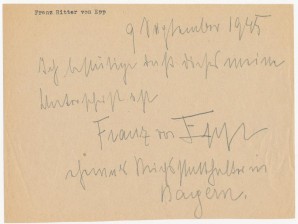 Franz Ritter von Epp
9 September 1945
Ich bestätige daß dieses meine
Unterschrift ist
Franz von Epp
ehemals Reichsstatthalter in
Bayern.